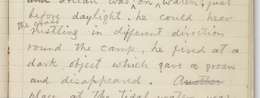 and Sullivan was on watch, just
before daylight, he could hear
the grass
rustling in different direction
round the camp, he fired at a
dark object which gave a groan
and disappeared. Another
place at the tidal water were